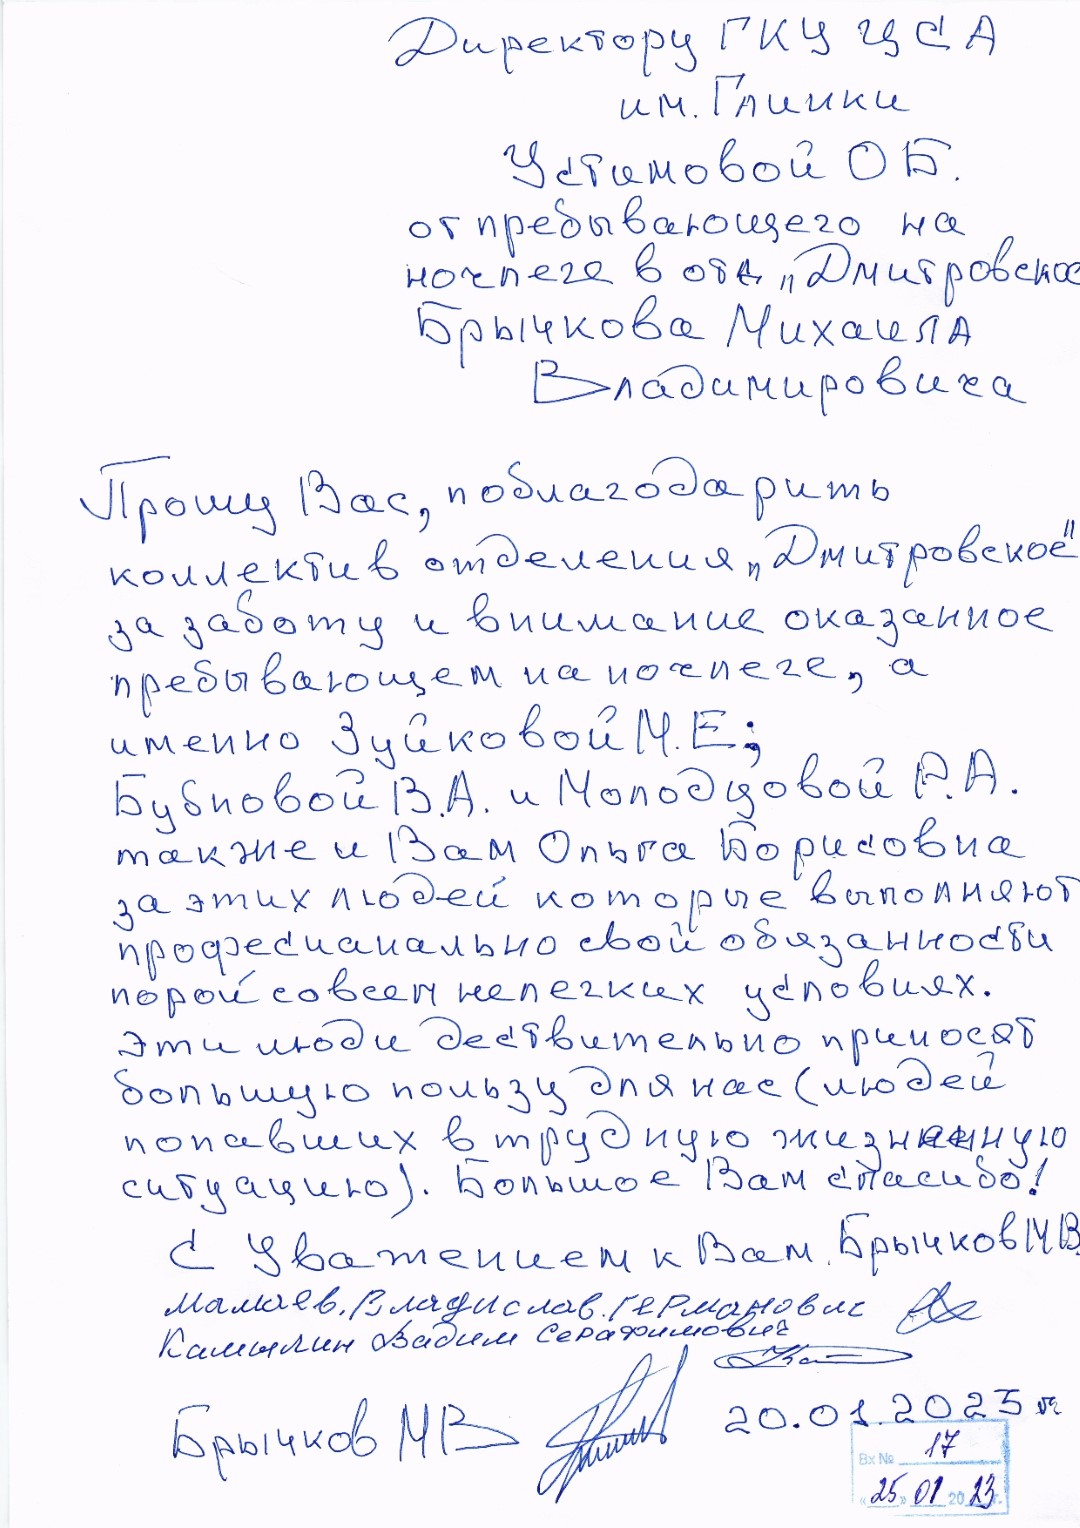 Директору ГКУ ЦСА
им. Глинки
Устимовой О Б.
от пребывающего на
ночлеге в отд „Дмитровское
Брычкова Михаила
Владимировича
Прошу Вас, поблагодарить
коллектив отделения „Дмитровское"
за заботу и внимание оказанное
пребывающем на ночлеге, а
именно Зуйковой М.Е;
Бубновой В.А. и Молодцовой Р.А.
также и Вам Ольга Борисовна
за этих людей которые выполняют
професианально свои обязанности
порой совсем нелегких условиях.
Эти люди дествительно приносят
большую пользу для нас (людей
попавших в трудную жизненную
ситуацию). Большое Вам спасибо!
С Уважением к Вам. Брычков М В.
Владислав. Германовис
Вадим Серафимович
Брычков МВ
20.01.2023 г
Вх № 17
«25» 01 2023 г.